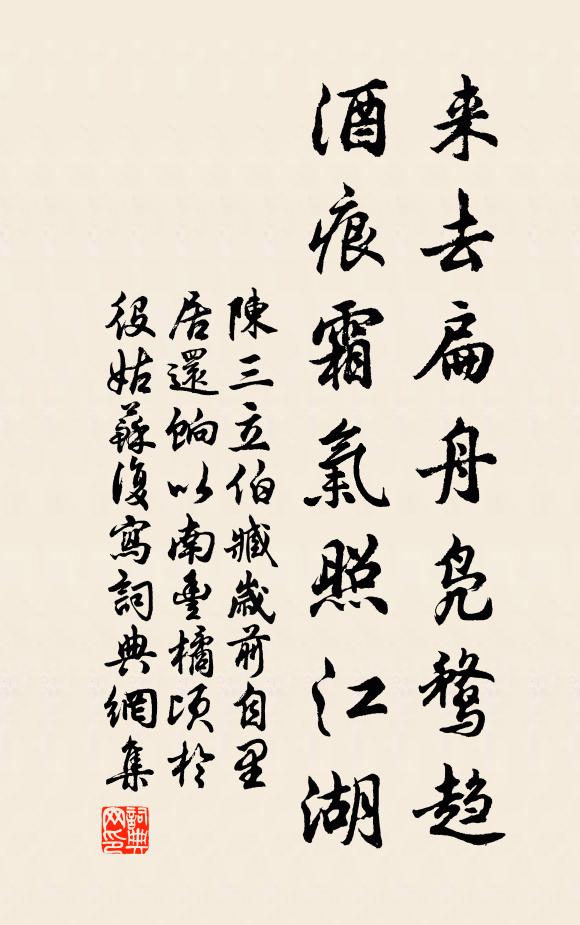 来去扁舟鳧鶩趋
酒痕霜氣照江湖
陳三立伯臧歲前自里
居還餉以南豐橘頃於
役姑蘇復寫詞典網集
詞典网印